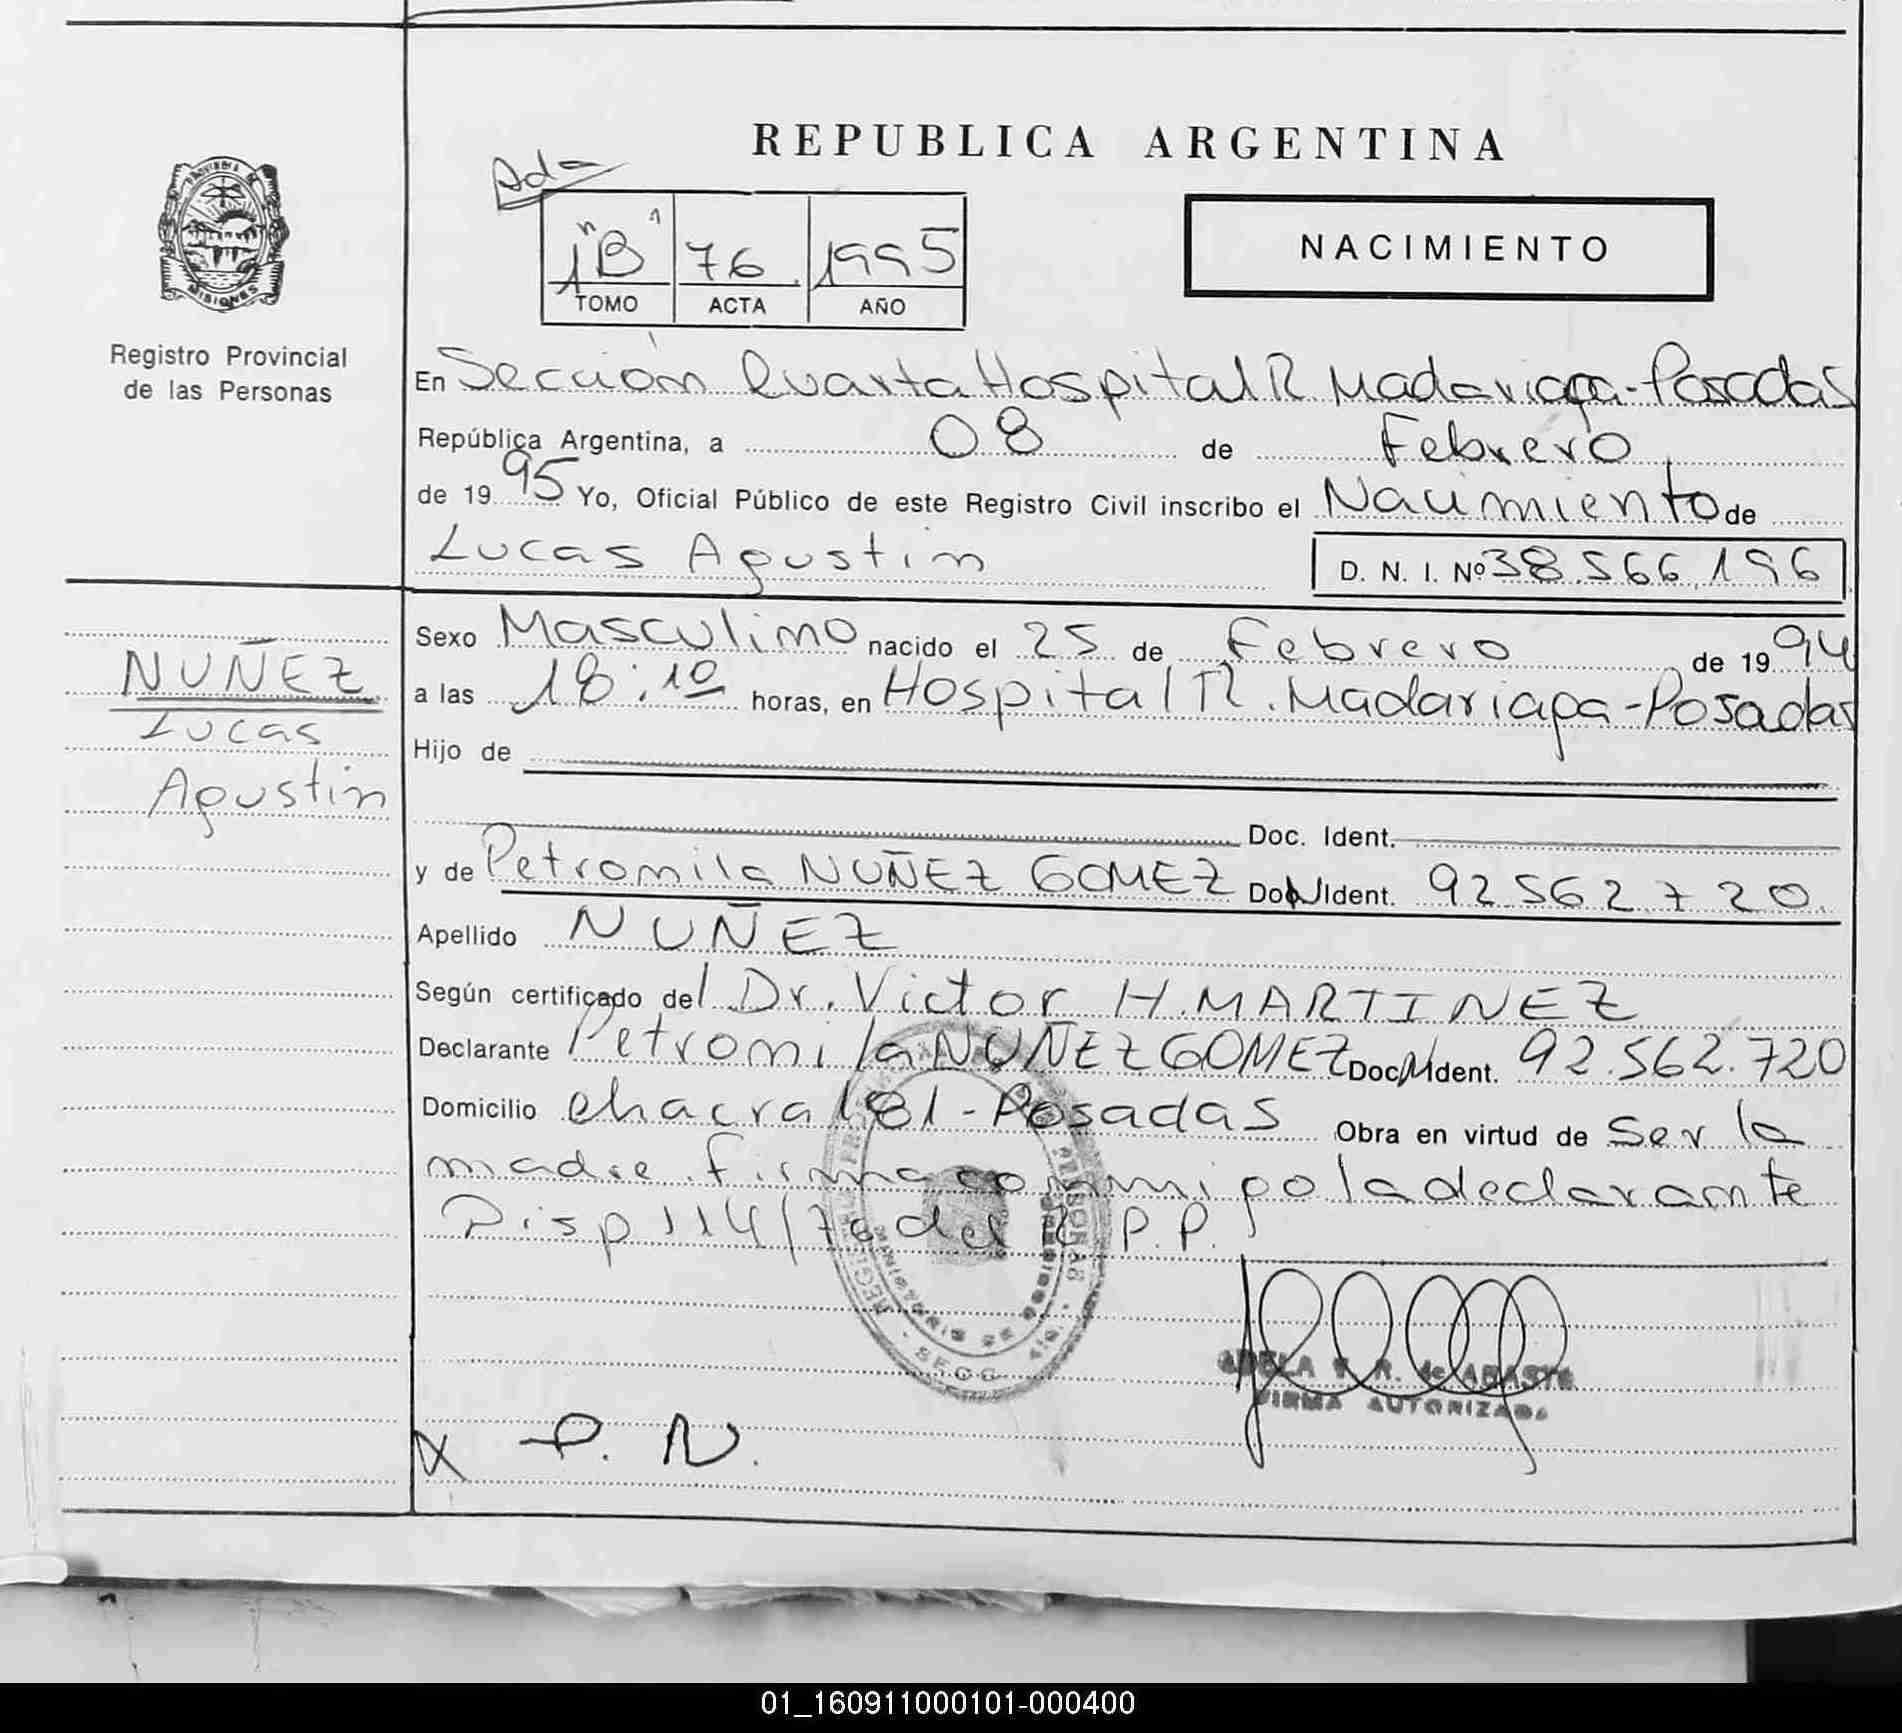 REPUBLICA ARGENTINA
Ada
1"B" 76 1995
TOMO ACTA AÑO
NACIMIENTO
MISIONES
Registro Provincial
de las Personas
En Sección Cuarta Hospital R. Madariaga - Posadas
República Argentina, a 08 de Febrero
de 1995 Yo, Oficial Público de este Registro Civil inscribo el Nacimiento de
Lucas Agustin D. N. I. Nº 38.566.196
Sexo Masculino nacido el 25 de Febrero de 1994
a las 18:10 horas, en Hospital R. Madariaga - Posadas
Hijo de
Doc. Ident.
y de Petromila NUÑEZ GOMEZ Doc. Ident. 92.562.720
Apellido NUÑEZ
Según certificado del Dr. Victor H. MARTINEZ
Declarante Petromila NUÑEZ GOMEZ Doc. Ident. 92.562.720
Domicilio chacra 181 - Posadas Obra en virtud de Ser la
madre. Firma conmigo la declarante
Disp 114/76 del R.P.P.
NUÑEZ
Lucas
Agustin
R. de
FIRMA AUTORIZADA
X P. N.
01_160911000101-000400